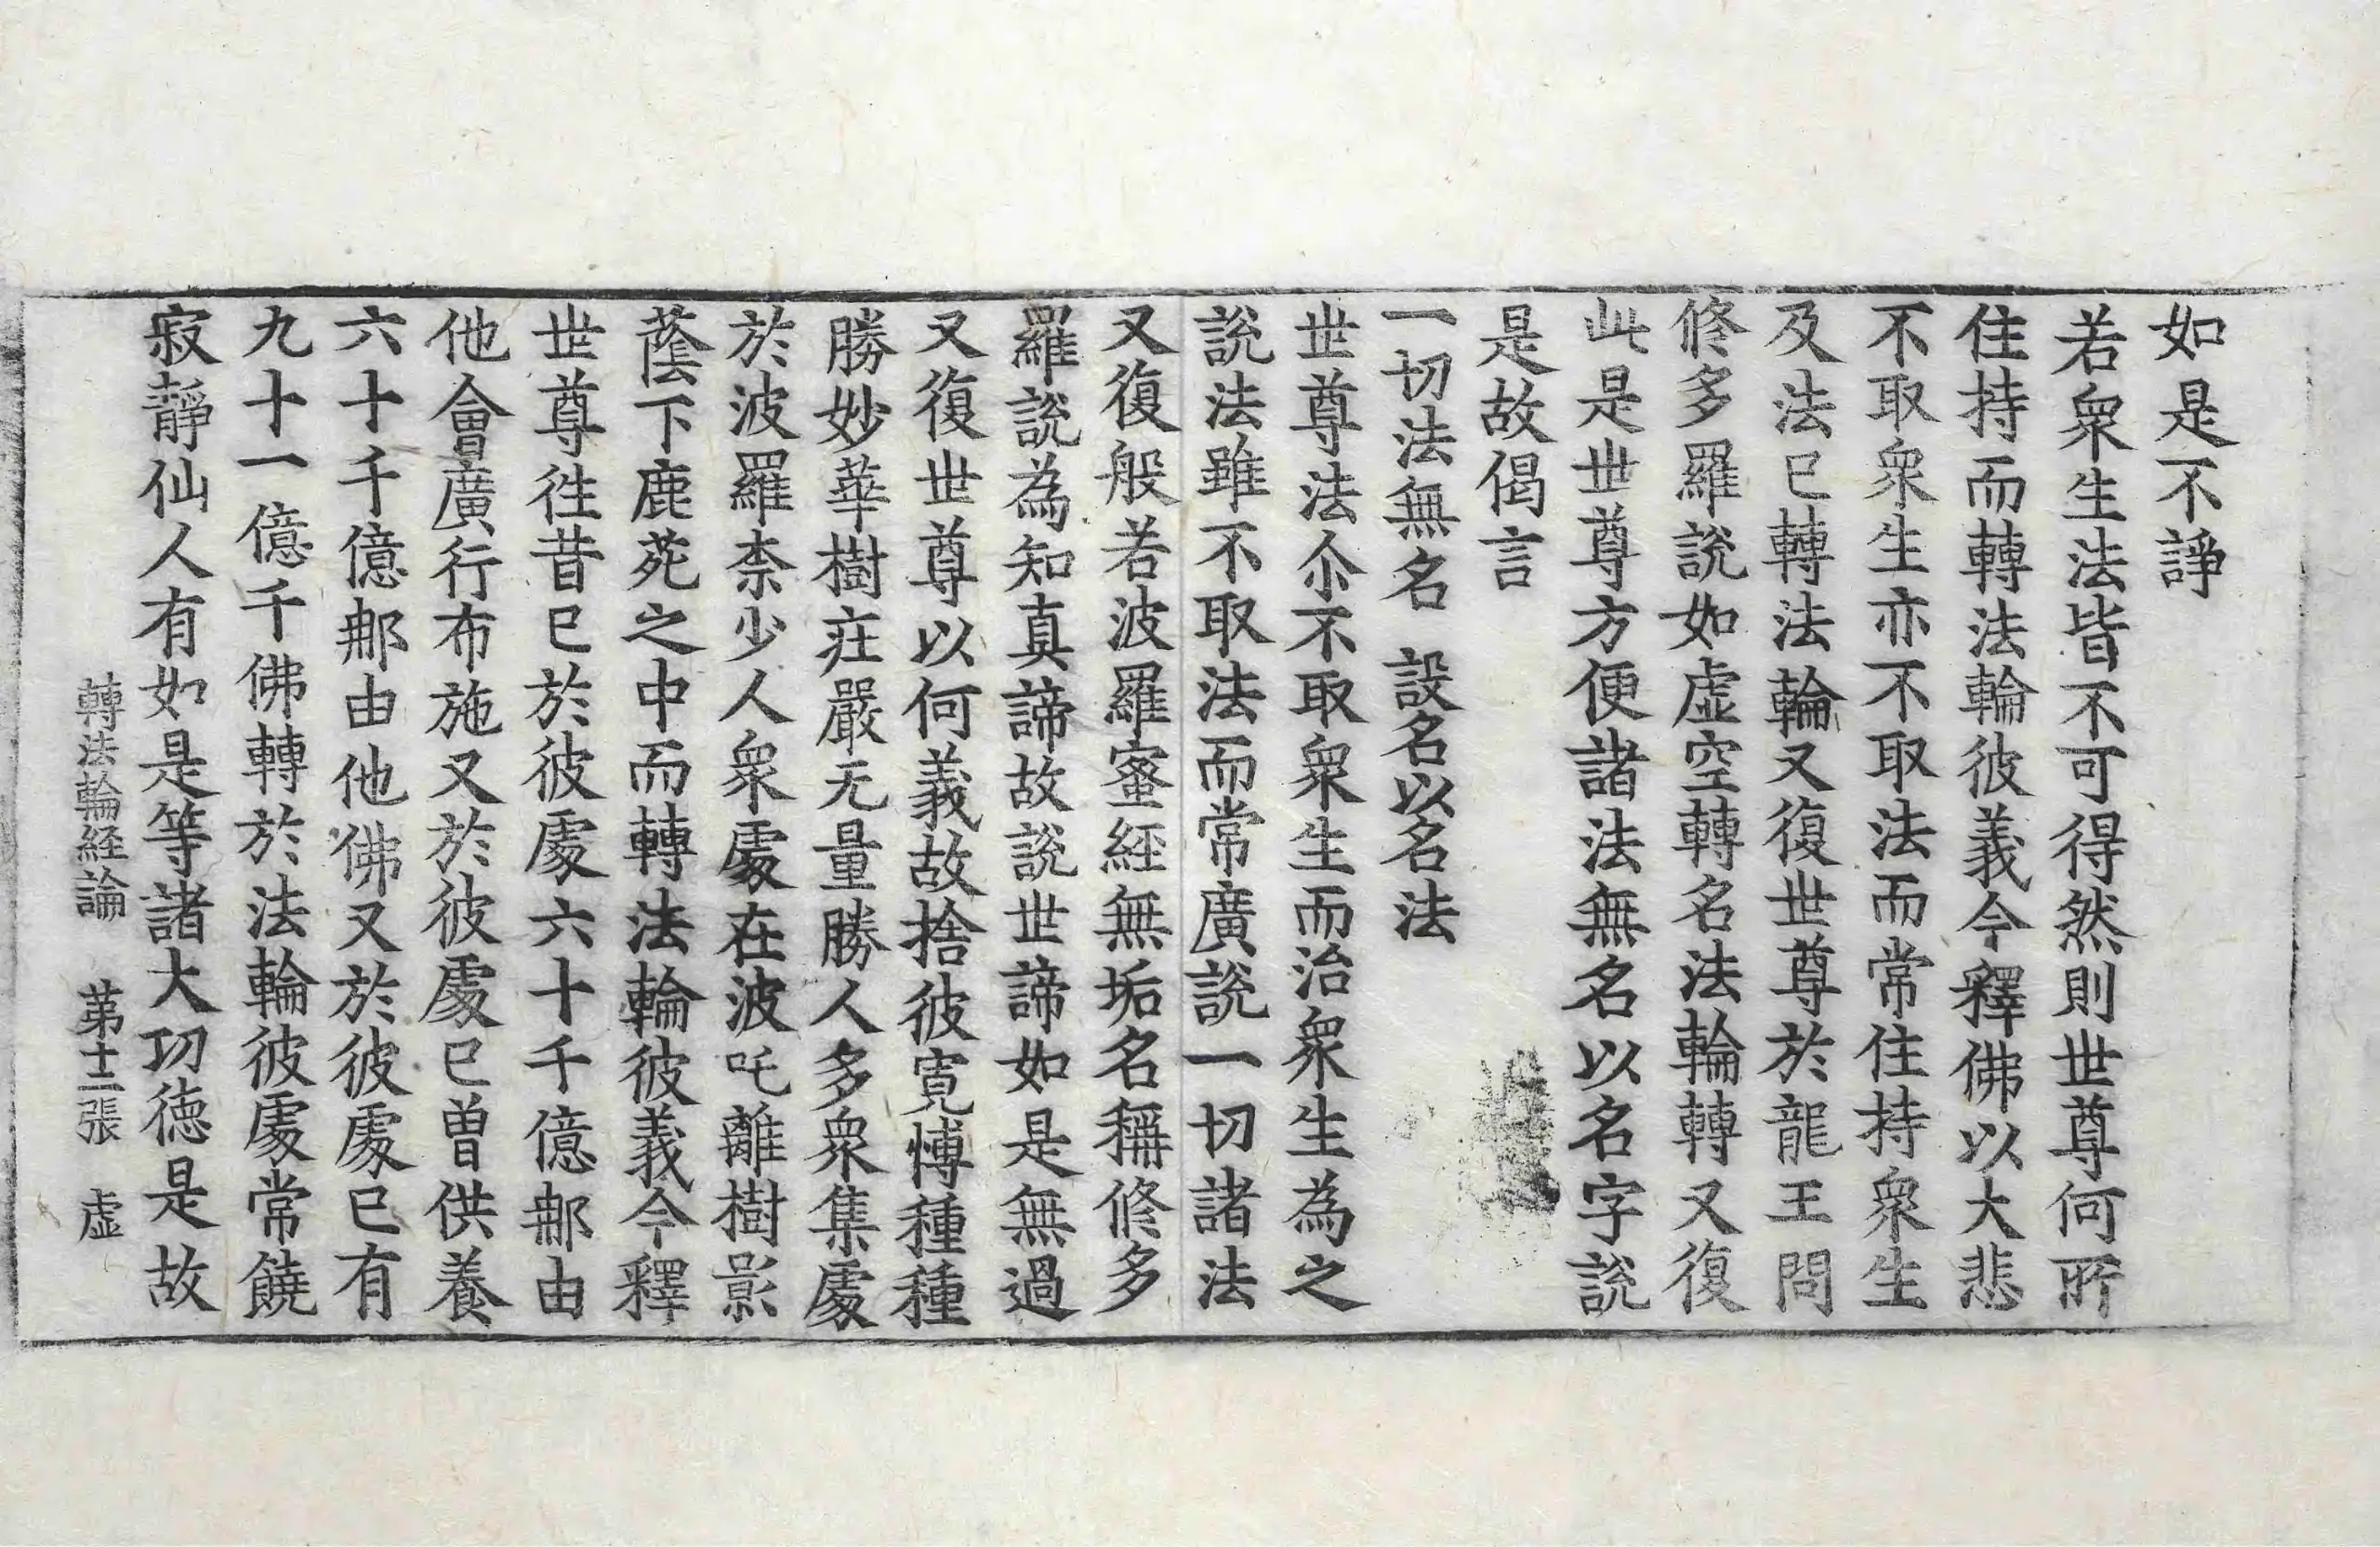 如是不諍
若衆生法皆不可得然則世尊何所
住持而轉法輪彼義今釋佛以大悲
不取衆生亦不取法而常住持衆生
及法已轉法輪又復世尊於龍王問
修多羅說如虛空轉名法輪轉又復
此是世尊方便諸法無名以名字說
是故偈言
一切法無名　設名以名法
世尊法尒不取衆生而治衆生為之
說法雖不取法而常廣說一切諸法
又復般若波羅蜜經無垢名稱修多
羅說為知真諦故說世諦如是無過
又復世尊以何義故捨彼寬愽種種
勝妙華樹莊嚴无量勝人多衆集處
於波羅柰少人衆處在波吒離樹影
蔭下鹿苑之中而轉法輪彼義今釋
世尊往昔已於彼處六十千億那由
他會廣行布施又於彼處已曽供養
六十千億那由他佛又於彼處已有
九十一億千佛轉於法輪彼處常饒
寂靜仙人有如是等諸大功德是故
轉法輪経論　第十二張　虛